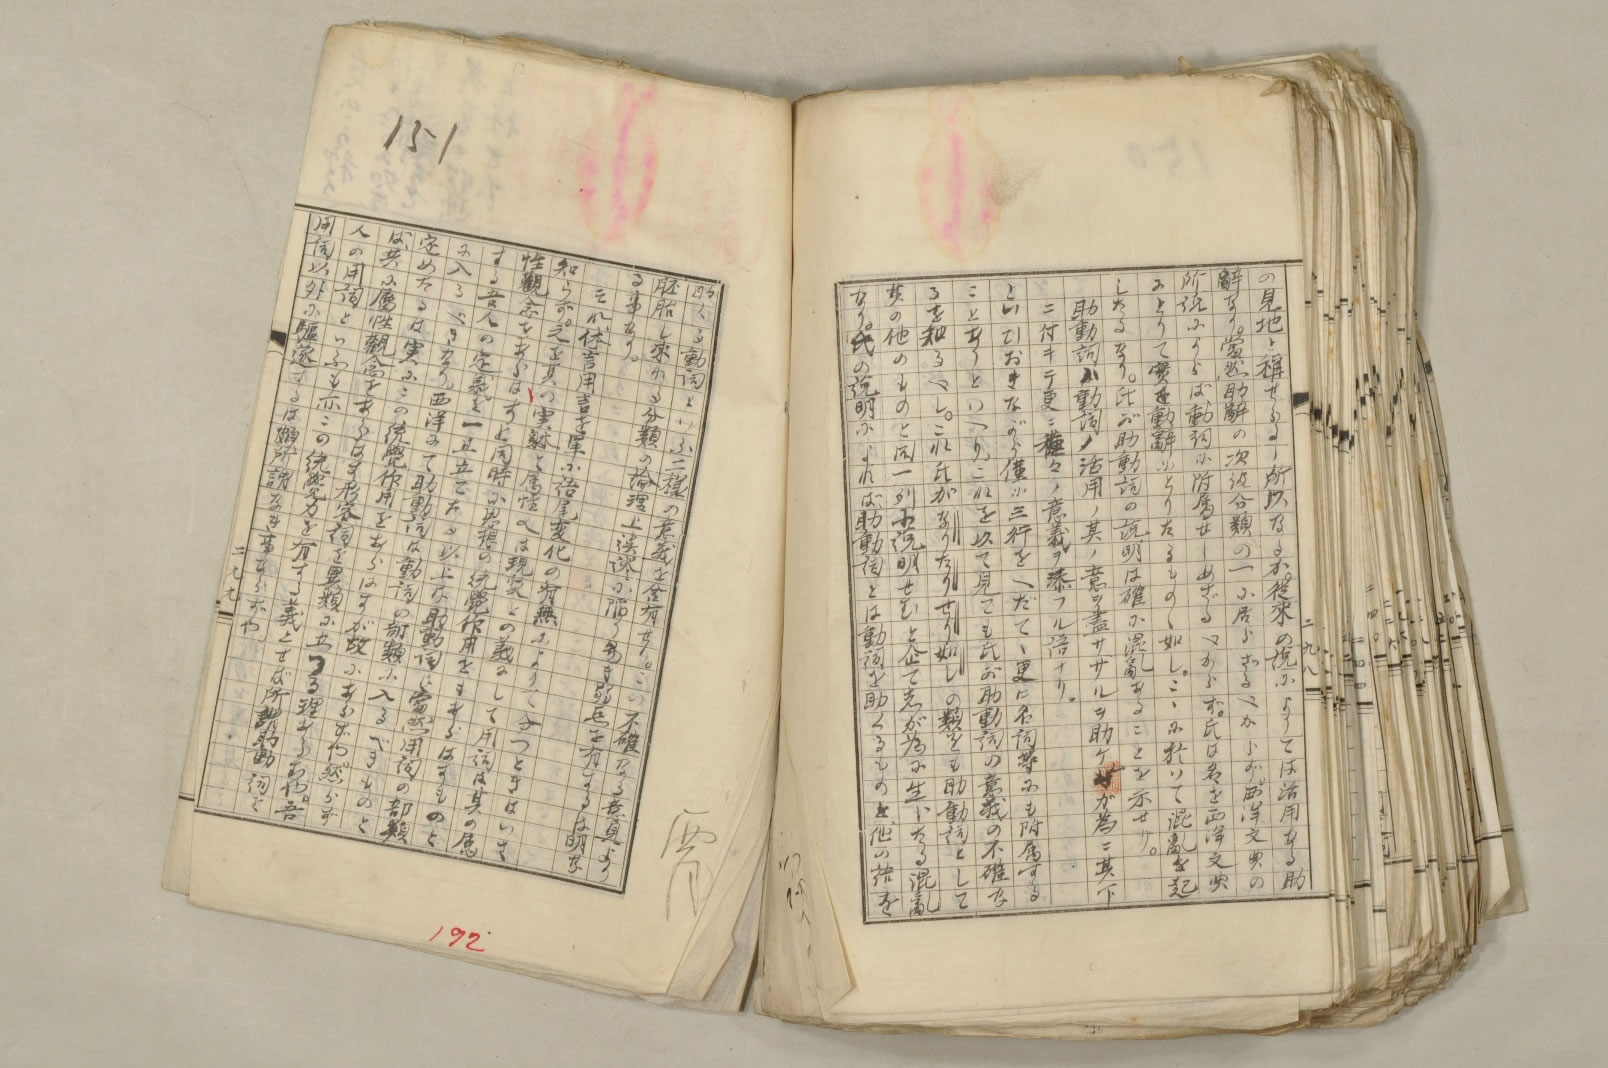 の見地と稱せらるゝ所以なるか。從來の説によりては活用ある助
辭なり。當然助辭の次位分類の一に居らざるべからず。西洋文典の
所説によらば動詞に附屬せしめざるべからず。氏は名を西洋文典
にとりて實を動辭にとりたるものゝ如し。こゝに於いて混亂を起
したるなり。氏が助動詞の説明は確に混亂あることを示せり。
助動詞ハ動詞ノ活用ノ其ノ意ヲ盡サザルヲ助ケ が為ニ其下
ニ付キテ更ニ種々ノ意義ヲ添フル語ナリ。
といひおきながら僅に三行をへだてゝ更に名詞等にも附屬する
ことありといへり。これを以て見ても氏が助動詞の意義の不確な
るを知るべし。これ氏がなりたりせり如しの類をも助動詞として
其の他のものと同一に説明せむと企てしが為に生じたる混亂
なり。氏の説明によれば助動詞とは動詞を助くるものと他の語を
二九八
助くる動詞といふ二樣の意義を含有せり。この不確なる意見より
胚胎し來れる分類の論理上誤謬に陷り易き弱点を有するは明な
る事なり。
それ体言用言を單に語尾變化の有無によりて分つときはいさ
知らず。之を其の実躰と属性又は現象との義にして用詞は其の属
性觀念をあらはすと同時に思想の統覺作用をもあらはすものと
する吾人の定義を一旦立てたる以上は助動詞は當然用詞の部類
に入るべきなり。西洋にて助動詞は動詞の部類に入るべきものと
定めたるは実にこの統覺作用をあらはすが故にあらずや。然らず
ば共に属性觀念をあらはす形容詞を異類に立つる理あらむや。吾
人の用詞といふも亦この統覺力を有する義とせば所謂助動詞を
用詞以外に驅逐するは謂なき事ならずや。
二九九
151
192